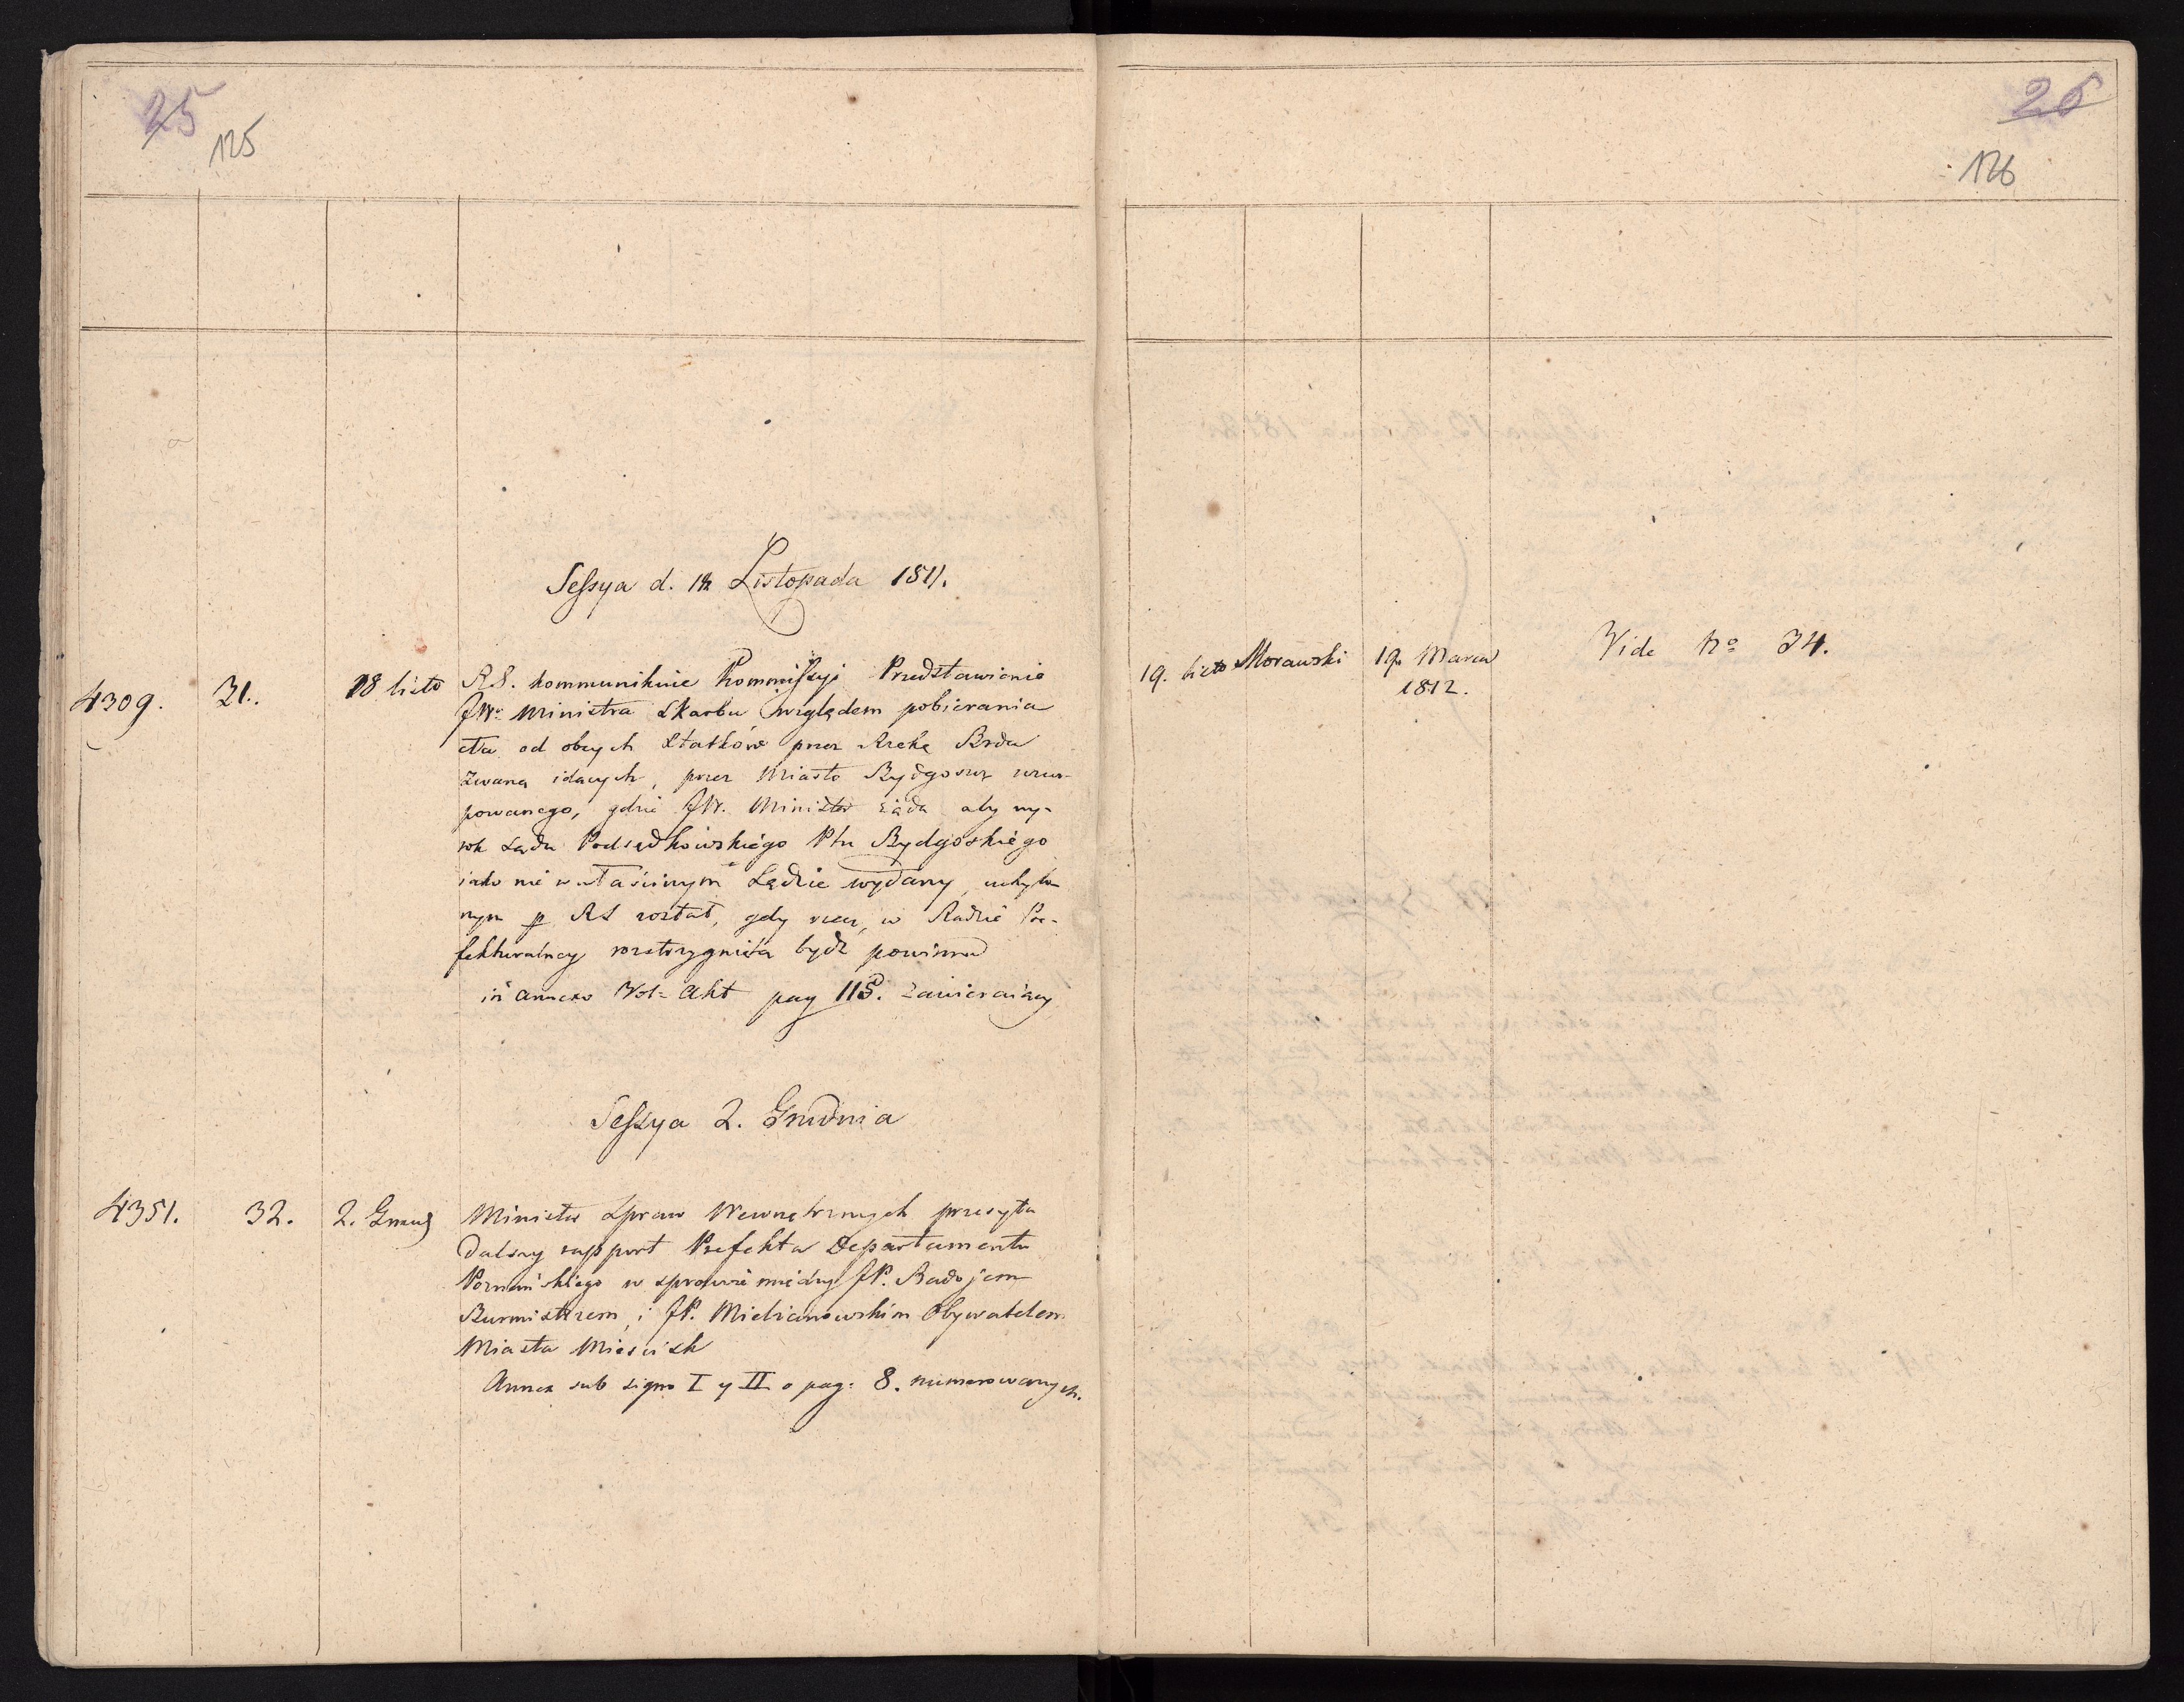 25
125
Sessya d. 18 Listopada 1811.
4309. 31. 18 listo R.S. kommunikuie Kommissyi Przedstawienie
JW. Ministra Skarbu względem pobierania
cła od obcych statków przez Rzekę Brda
zwaną idących, przez Miasto Bydgoszcz uzur-
powanego, gdzie JW. Minister żąda aby wy-
rok Sądu Podsędkowskiego Ptu Bydgoskiego
iako nie w właściwym Sądzie wydany, uchylo-
nym p RS został, gdy rzecz, w Radzie Pre-
fekturalney rozstrzygnięta bydź powinna
in annexo Vol: Akt pag 115. zawieraiący
Sessya 2. Grudnia
4351. 32. 2. Grud Minister Spraw Wewnętrznych przesyła
dalszy rapport Prefekta Departamentu
Poznańskiego w sprawie między JP. Radojem
Burmistrzem, i JP. Mielcianowskim Obywatelem
Miasta Mieścisk
Annex sub signo I y II o pag: 8. numerowanych.
26
126
19. listo Morawski 19. Marca Vide No 34.
1812.